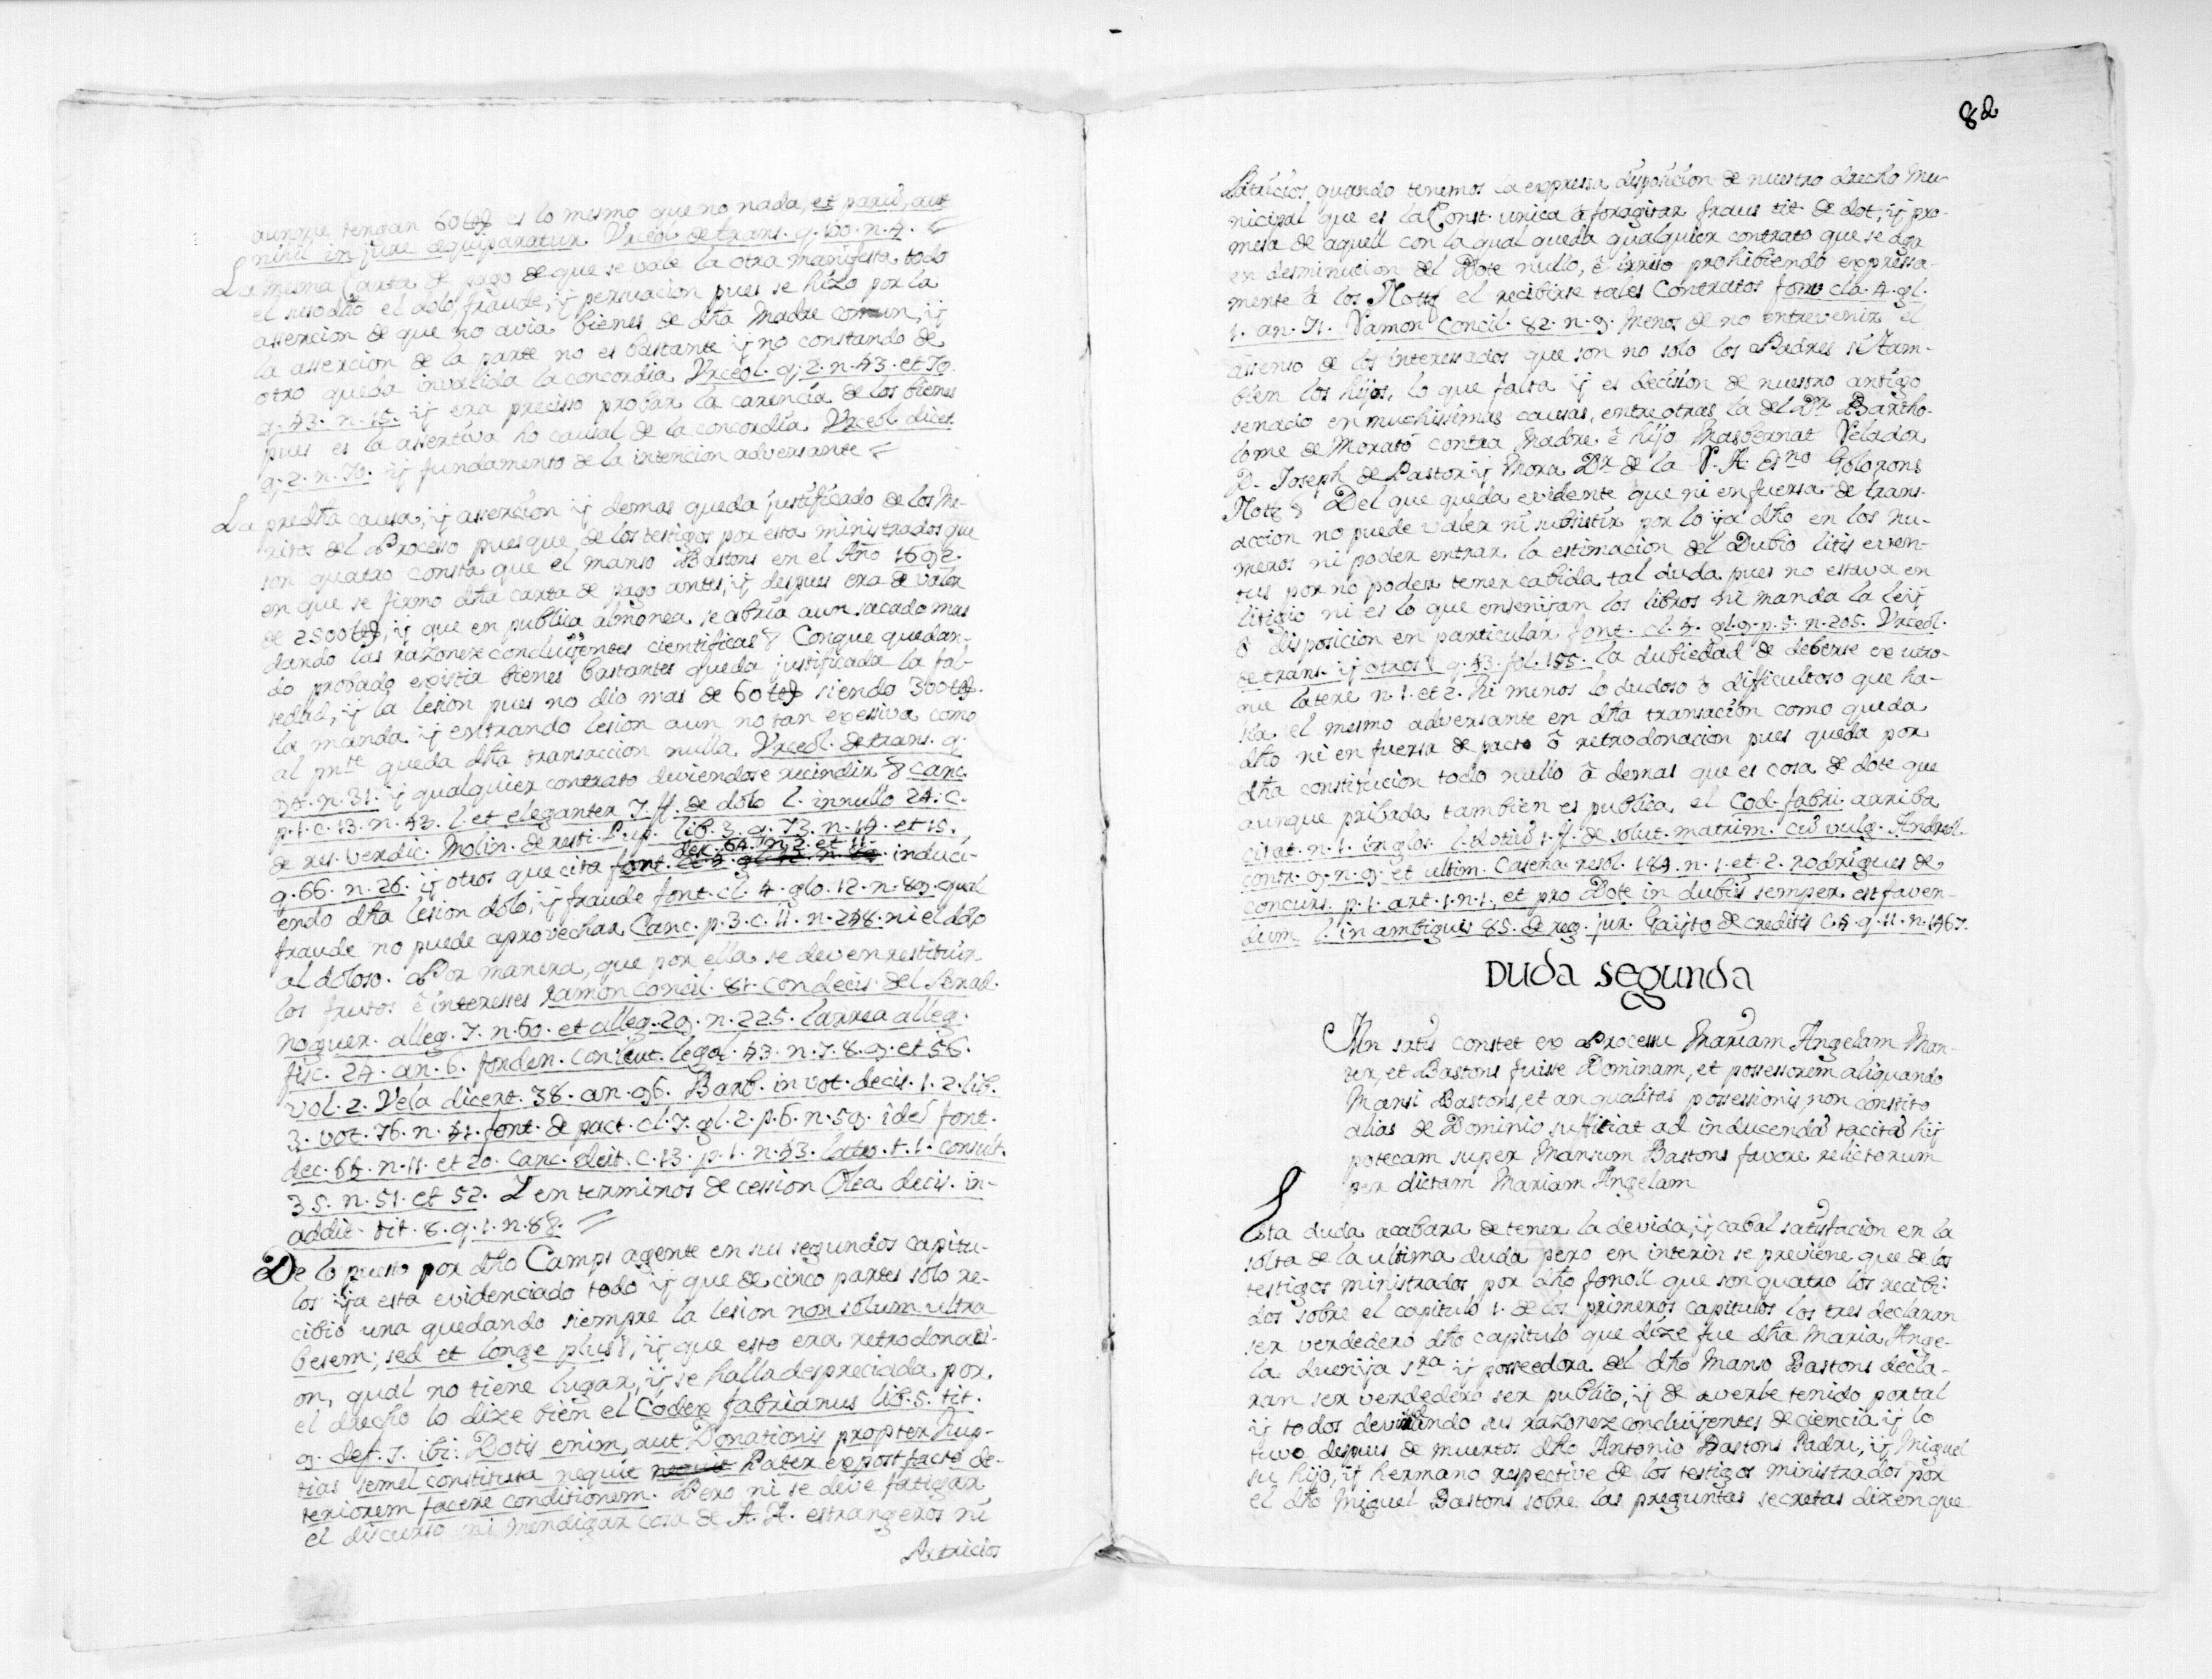 aunque tengan 60 ll es lo mesmo que no nada, et parũ, aut
nihil in jure equiparatur. Vrceol. de trans. q. 60. n. 4.
La mesma Carta de pago de que se vale la otra manifiesta todo
el susodho el dolo, fraude, ÿ persuacion pues se hizo por la
assercion de que no avia bienes de dha Madre comun, ÿ
la assercion de la parte no es bastante ÿ no constando de
otro queda invalida la concordia Vrceol. q. 2. n. 43. et 70.
q. 43. n. 15. ÿ era precisso probar la carencia de los bienes
pues es la assertiva ho causal de la concordia Vrceol. dict.
q. 2. n. 70. ÿ fundamento de la intencion adversante
La predha causa, ÿ assercion ÿ demas queda justificado de los Me-
ritos del Processo pues que de los testigos por esta ministrados que
son quatro consta que el manso Bastons en el Año 1692.
en que se firmo dha carta de pago antes, ÿ despues era de valer
de 2500 ll, ÿ que en publica almonea se abria aun sacado mas
dando las razonez concluÿentes cientificas & Conque quedan-
do probado existir bienes bastantes queda justificada la fal-
sedad, ÿ la lesion pues no dio mas de 60 ll siendo 300 ll.
la manda ÿ entrando lesion aun no tan excessiva como
al pnte queda dha transaccion nulla Vrceol. de trans. q.
94. n. 31. ÿ qualquier contrato deviendose recindir & Canc.
p. 1. c. 13. n. 43. l. et eleganter 7. ff. de dolo l. in nullo 24. C.
de res. verdic. Molin. de resti. P. ip. lib. 3. q. 73. n. 14. et 15.
q. 66. n. 26. ÿ otros que cita font. dec. 64. n. 2. et 11. induci-
endo dha lesion dolo, ÿ fraude font. cl. 4. glo. 12. n. 89. qual
fraude no puede aprovechar Canc. p. 3. c. 11. n. 248. ni el dolo
al doloso. Por manera, que por ella se deven restituir
los frutos ê interesses Ramon Concil. 81. con decis. del Senad.
noguer. alleg. 7. n. 60. et alleg. 29. n. 225. larrea alleg.
fisc. 24. an. 6. Jorden. conleut. legal. 43. n. 7. 8. 9. et 56.
vol. 2. Vela dicert. 38. an. 96. Barb. in vot. decis. 1. 2. lib.
3. vot. 76. n. 41. font. de pact. cl. 7. gl. 2. p. 6. n. 59. idẽ font.
dec. 64. n. 11. et 20. Canc. dict. c. 13. p. 1. n. 43. t. 1. consult.
35. n. 51. et 52. I en terminos de cession Olea decis. in-
addit. tit. 8. q. 1. n. 88.
De lo puesto por dho Camps agente en sus segundos capitu-
los ÿa esta evidenciado todo ÿ que de cinco partes solo re-
cibio una quedando siempre la lesion non solum ultra
besem; sed et longe plus, ÿ que esto era retrodonaci-
on, qual no tiene lugar, ÿ se halla despreciada por
el drecho lo dize bien el Codex fabrianus lib. 5. tit.
9. def. 7. ibi: Dotis enim, aut Donationis propter Nup-
tias semel constituta nequit Pater ex post facto de-
teriorem facere conditionem. Pero ni se deve fatigar
el discurso ni mendigar cosa de A. A. estrangeros ni
Patricios
82
Patricios quando tenemos la expressa disposicion de nuestro drecho Mu-
nicipal que es la Const. unica â foragitar fraus tit. de dot, ÿ pro-
mesa de aquell con la qual queda qualquier contrato que se aga
en desminucion del Dote nullo, ê irrito prohibiendo expressa-
mente â los Notts el recibirse tales contratos font. cla. 4. gl.
1. an. 71. Ramon Concil. 82. n. 9. Menos de no entrevenir el
assenso de los interessados que son no solo los Padres sî tam-
bien los hijos, lo que falta ÿ es decision de nuestro antigo
senado en muchissimas causas, entre otras la del Dr. Bartho-
lome de Morató contra Madre ê hijo Masbernat Relador
D. Joseph de Pastor ÿ Mora Dr de la R. A. Esno Golorons
Nott & Del que queda evidente que ni en fuersa de trans-
accion no puede valer ni subsistir por lo ÿa dho en los nu-
meros ni poder entrar la estimacion del Dubio litis even-
tus por no poder tener cabida tal duda pues no estava en
litigio ni es lo que ensenÿan los libros ni manda la leÿ
ô disposicion en particular font. cl. 4. gl. 9. p. 5. n. 205. Vrceol.
de trans. ÿ otros q. 43. fol. 155. la dubiedad de deberse ex utro-
que latere n. 1. et 2. Ni menos lo dudoso ô difficultoso que ha-
sia el mesmo adversante en dha transaction como queda
dho ni en fuersa de pacto ô retrodonacion pues queda por
dha constitucion todo nullo â demas que es cosa de dote que
aunque pribada tambien es publica el Cod. fabri. arriba
citat. n. 1. in glos. l. dotiũ 1. ff. de solut. matrim. cũ vulg. Andreol.
contr. 9. n. 9. et ultim. Casena resol. 184. n. 1. et 2. rodrigues de
concurs. p. 1. art. 1. n. 1., et pro Dote in dubiis semper est faven-
dum l. in ambiguis 85. de reg. jur. Gaÿto de creditis C. 4. q. 11. n. 1467.
Duda segunda
An satis constet ex Processu Mariam Angelam Mar-
rer, et Bastons fuisse Dominam, et possessorem aliquando
Mansi Bastons, et an qualitas possessionis, non constito
alias de Dominio suffitiat ad inducendã tacitã hÿ
potecam super Mansum Bastons favore relictorum
per dictam Mariam Angelam
Esta duda acabara de tener la devida, ÿ cabal satisfacion en la
solta de la ultima duda pero en interin se previene que de los
testigos ministrados por dho fonoll que son quatro los recibi-
dos sobre el capitulo 1. de los primeros capitulos los tres declaran
ser verdedero dho capitulo que dize fue dha Maria Ange-
la duenÿa sra ÿ posseedora del dho Manso Bastons decla-
ran ser verdedero ser publico, ÿ de averle tenido por tal
ÿ todos devisando sus razonez concluÿentes de ciencia ÿ lo
tuvo despues de muertos dho Antonio Bastons Padre, ÿ Miguel
su hijo, ÿ hermano respective de los testigos ministrados por
el dho Miguel Bastons sobre las preguntas secretas dizen que